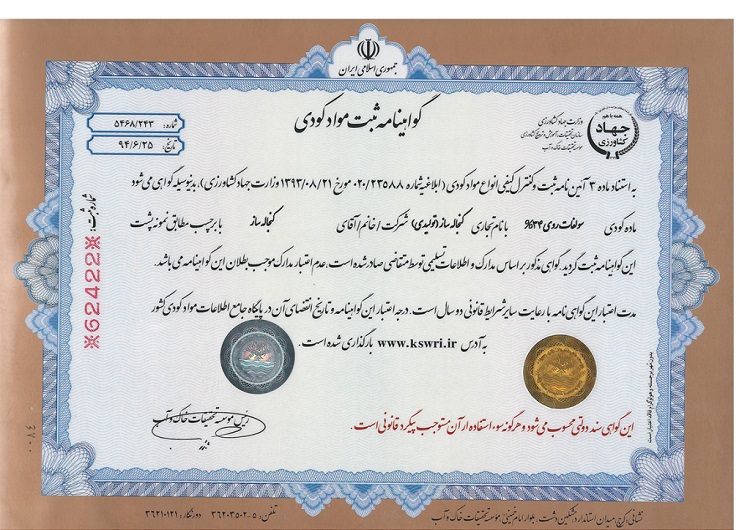 جمهوری اسلامی ایران
گواهینامه ثبت مواد کودی
شماره: ۵۴۶۸/۲۴۳
تاریخ: ۹۴/۶/۲۵
همه با هم
جهاد
کشاورزی
وزارت جهاد کشاورزی
سازمان تحقیقات، آموزش و ترویج کشاورزی
موسسه تحقیقات خاک و آب
به استناد ماده ۳ آئین نامه ثبت و کنترل کیفی انواع مواد کودی (ابلاغیه شماره ۰۲۰/۲۳۵۸۸ مورخ ۱۳۹۳/۰۸/۲۱ وزارت جهاد کشاورزی)، بدینوسیله گواهی می شود
ماده کودی سولفات روی ۳۴% با نام تجاری کنجاله ساز (تولیدی) شرکت/خانم/آقای کنجاله ساز با برچسب مطابق نمونه پشت
این گواهینامه ثبت گردید. گواهی مذکور بر اساس مدارک و اطلاعات تسلیمی توسط متقاضی صادر شده است، عدم اعتبار مدارک موجب بطلان این گواهینامه می باشد.
مدت اعتبار این گواهی نامه با رعایت سایر شرایط قانونی دو سال است. درجه اعتبار این گواهینامه و تاریخ انقضای آن در پایگاه جامع اطلاعات مواد کودی کشور
به آدرس www.kswri.ir بارگذاری شده است.
شماره ثبت:
※62422※
رئیس موسسه تحقیقات خاک و آب
این گواهی سند دولتی محسوب می شود و هرگونه سوء استفاده از آن مستوجب پیگرد قانونی است.
بدون مهر برجسته و هولوگرام فاقد اعتبار است
۰۰۸۴
نشانی: کرج، میدان استاندارد، مشکین دشت، بلوار امام خمینی، موسسه تحقیقات خاک و آب
تلفن: ۵-۳۶۲۰۳۵۰۲ دورنگار: ۳۶۲۱۰۱۲۱